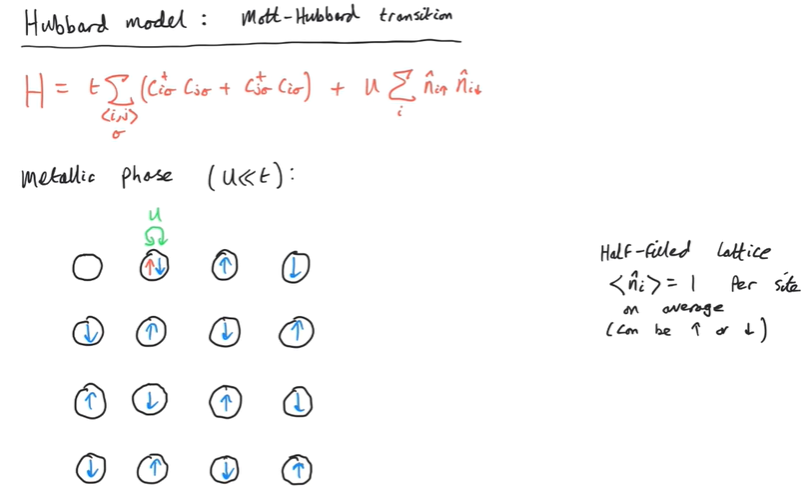 Hubbard model : Mott-Hubbard transition
H = t Σ (c†iσ cjσ + c†jσ ciσ) + u Σ n̂i↑ n̂i↓
<i,j> i
σ
Metallic phase (u≪t):
u
↑↓ ↑ ↓
↓ ↑ ↓ ↑
↑ ↓ ↑ ↓
↓ ↑ ↓ ↑
Half-filled lattice
<n̂i> = 1 per site
on average
(can be ↑ or ↓)